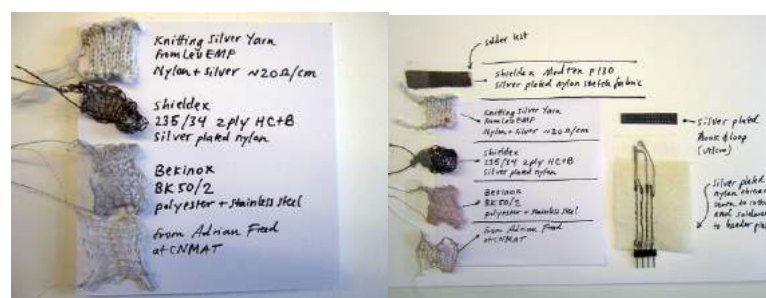 Knitting Silver Yarn
from Lev EMP
Nylon + silver ~20Ω/cm
shieldex
235/34 2ply HC+B
silver plated nylon
Bekinox
BK 50/2
polyester + stainless steel
from Adrian Freed
at CNMAT
solder test
shieldex Med Tex P130
silver plated nylon stretch fabric
Knitting Silver Yarn
from Lev EMP
Nylon + silver ~20Ω/cm
shieldex
235/34 2ply HC+B
silver plated nylon
Bekinox
BK 50/2
polyester + stainless steel
from Adrian Freed
at CNMAT
silver plated
Hook & loop
(velcro)
silver plated
nylon
and soldered
to header